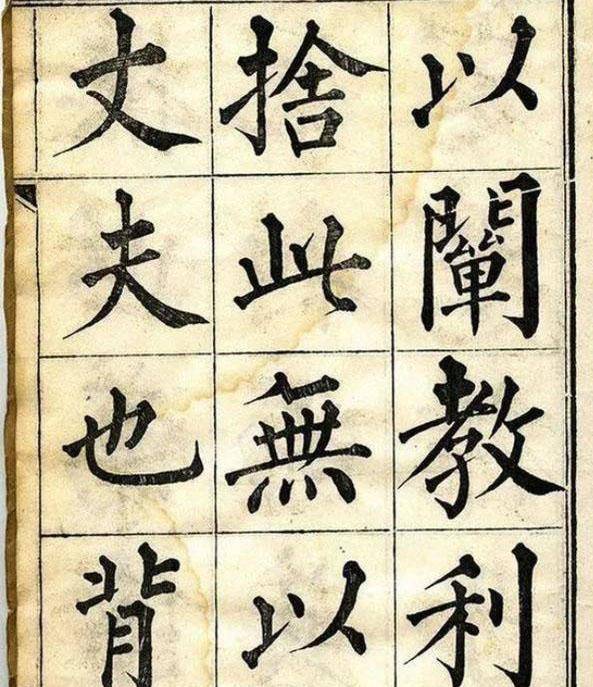 以闡教利
捨此無以
丈夫也背